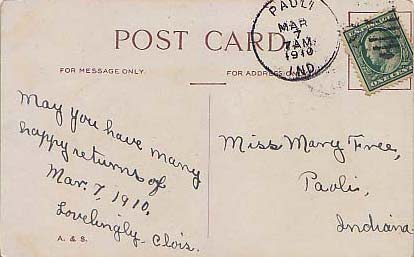 POST CARD.
PAOLI
MAR
7
7 AM
1910
IND.
FOR MESSAGE ONLY.
FOR ADDRESS ONLY.
May you have many
happy returns of
Mar. 7, 1910,
Lovelingly-Clois.
A. & S.
Miss Mary Free,
Paolis,
Indiana